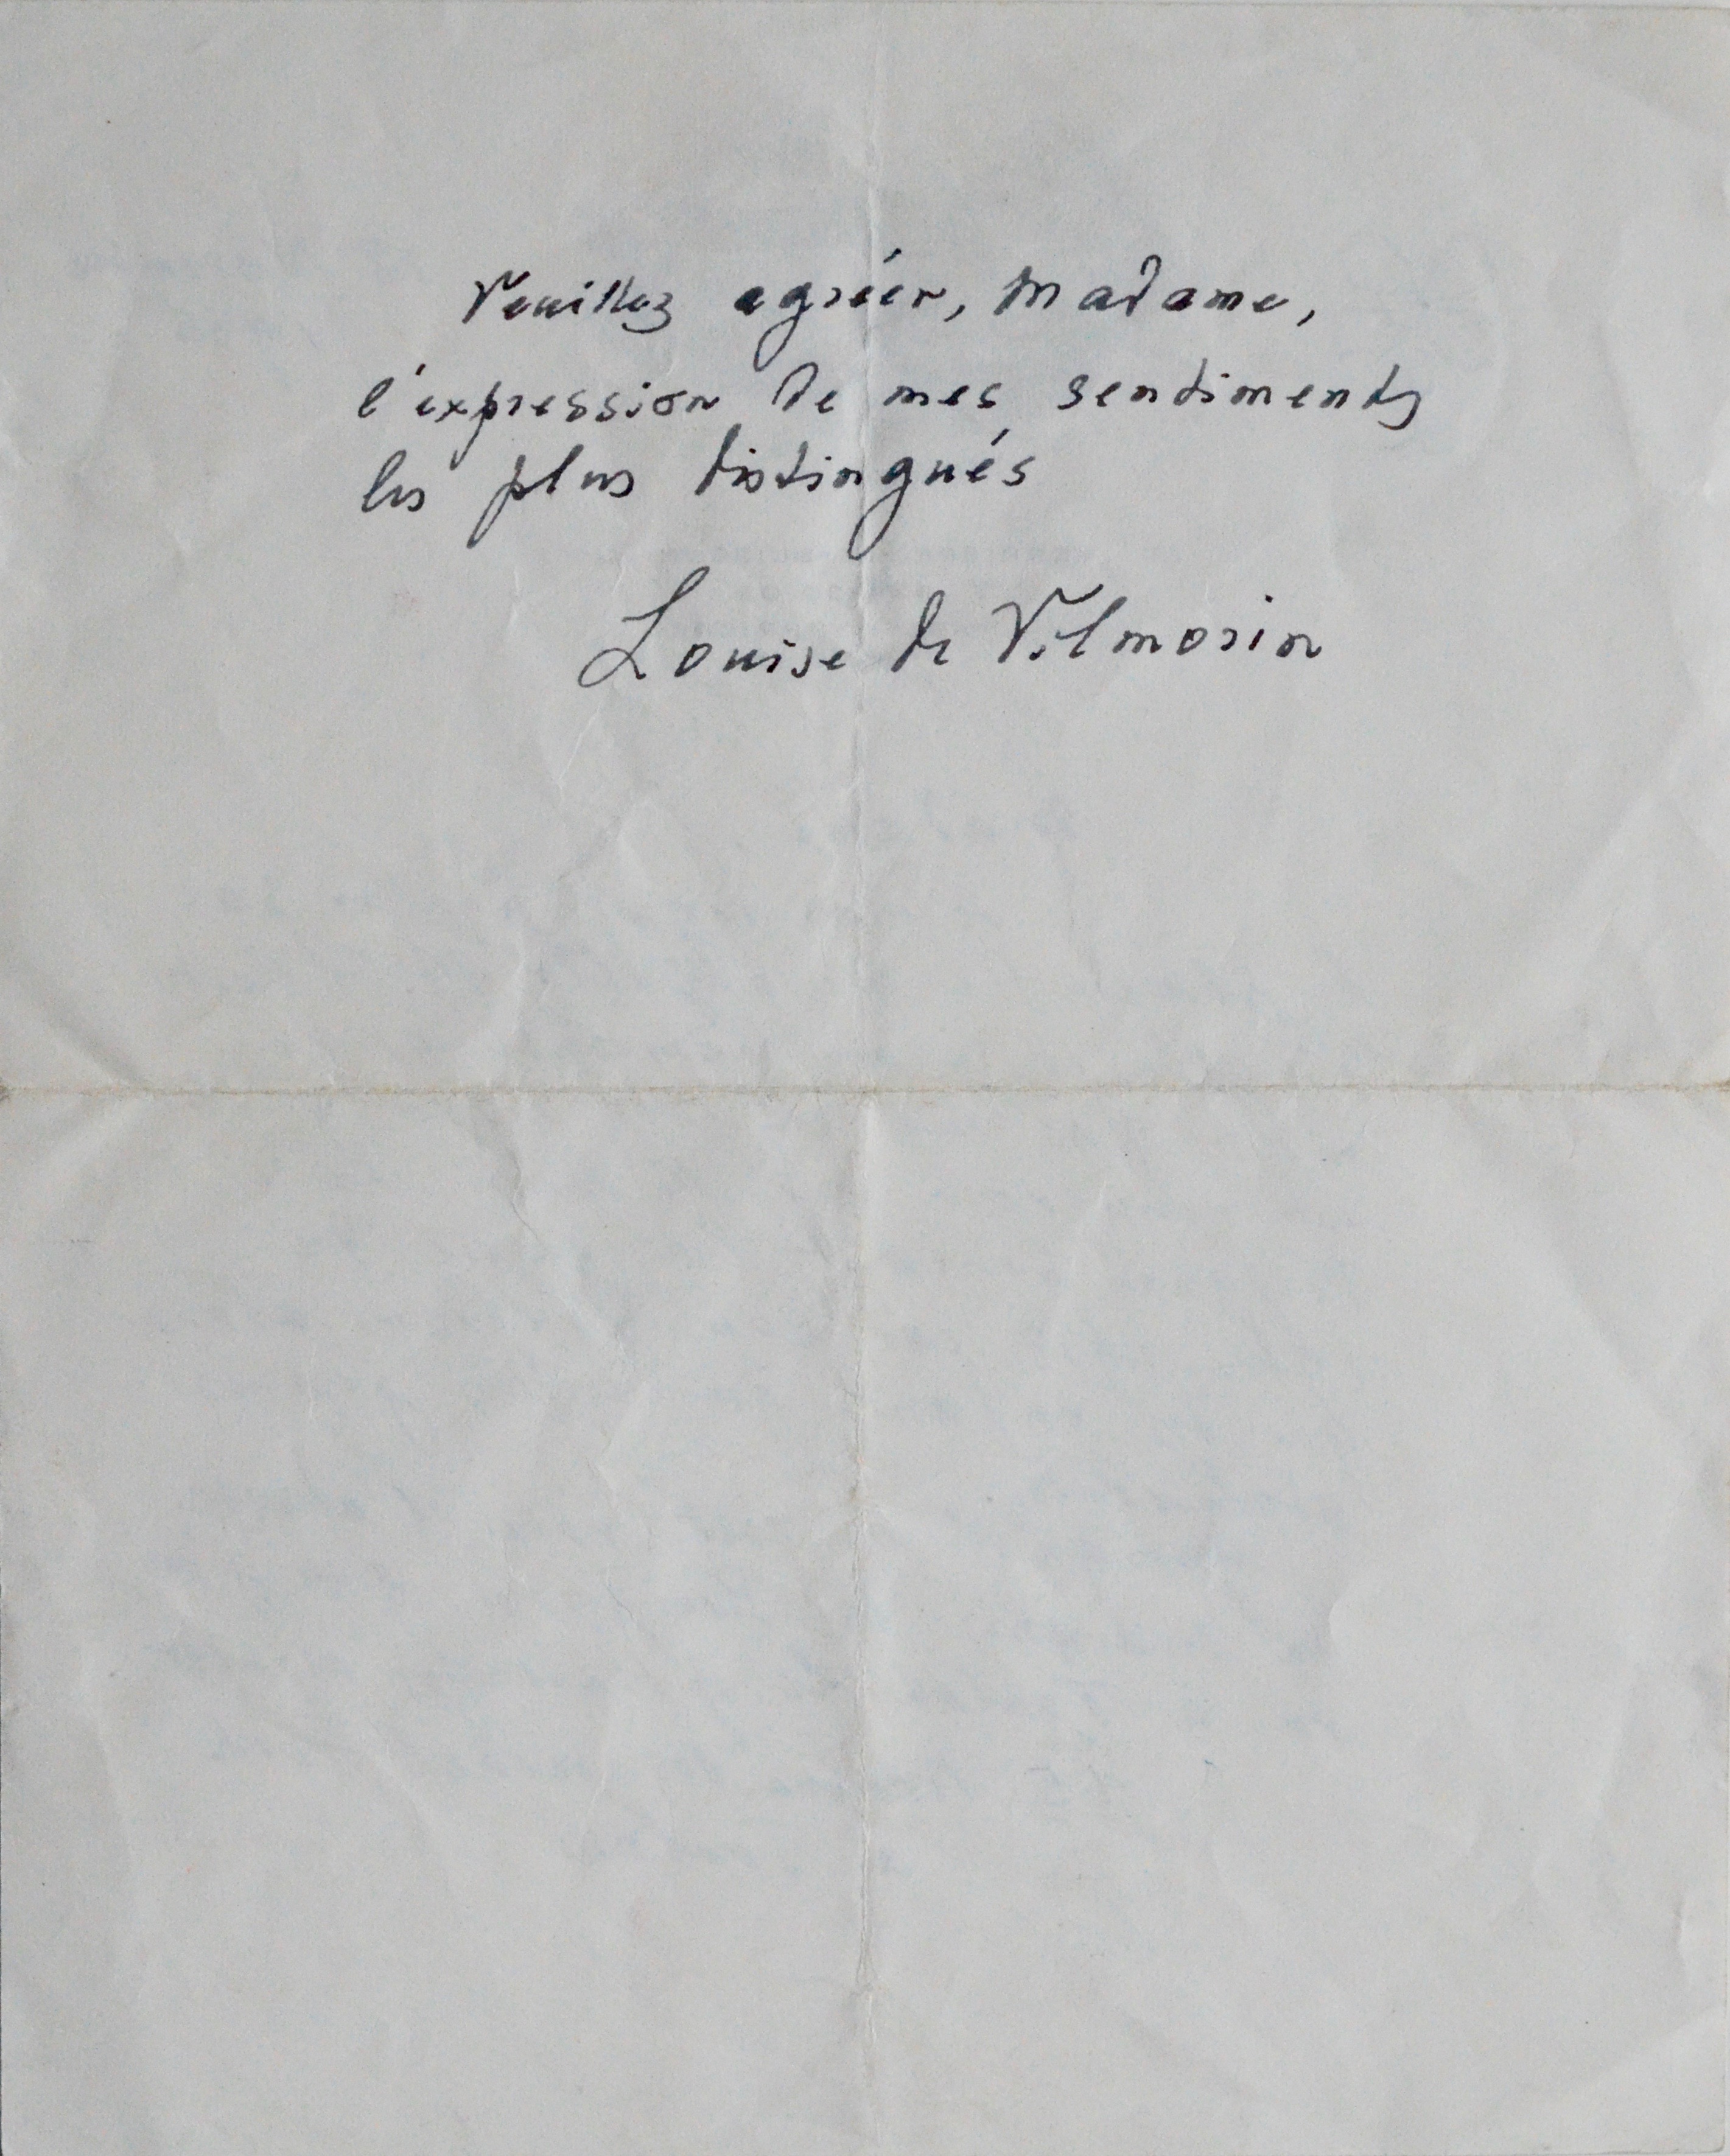 Veuillez agréer, Madame,
l'expression de mes sentiments
les plus distingués
Louise de Vilmorin